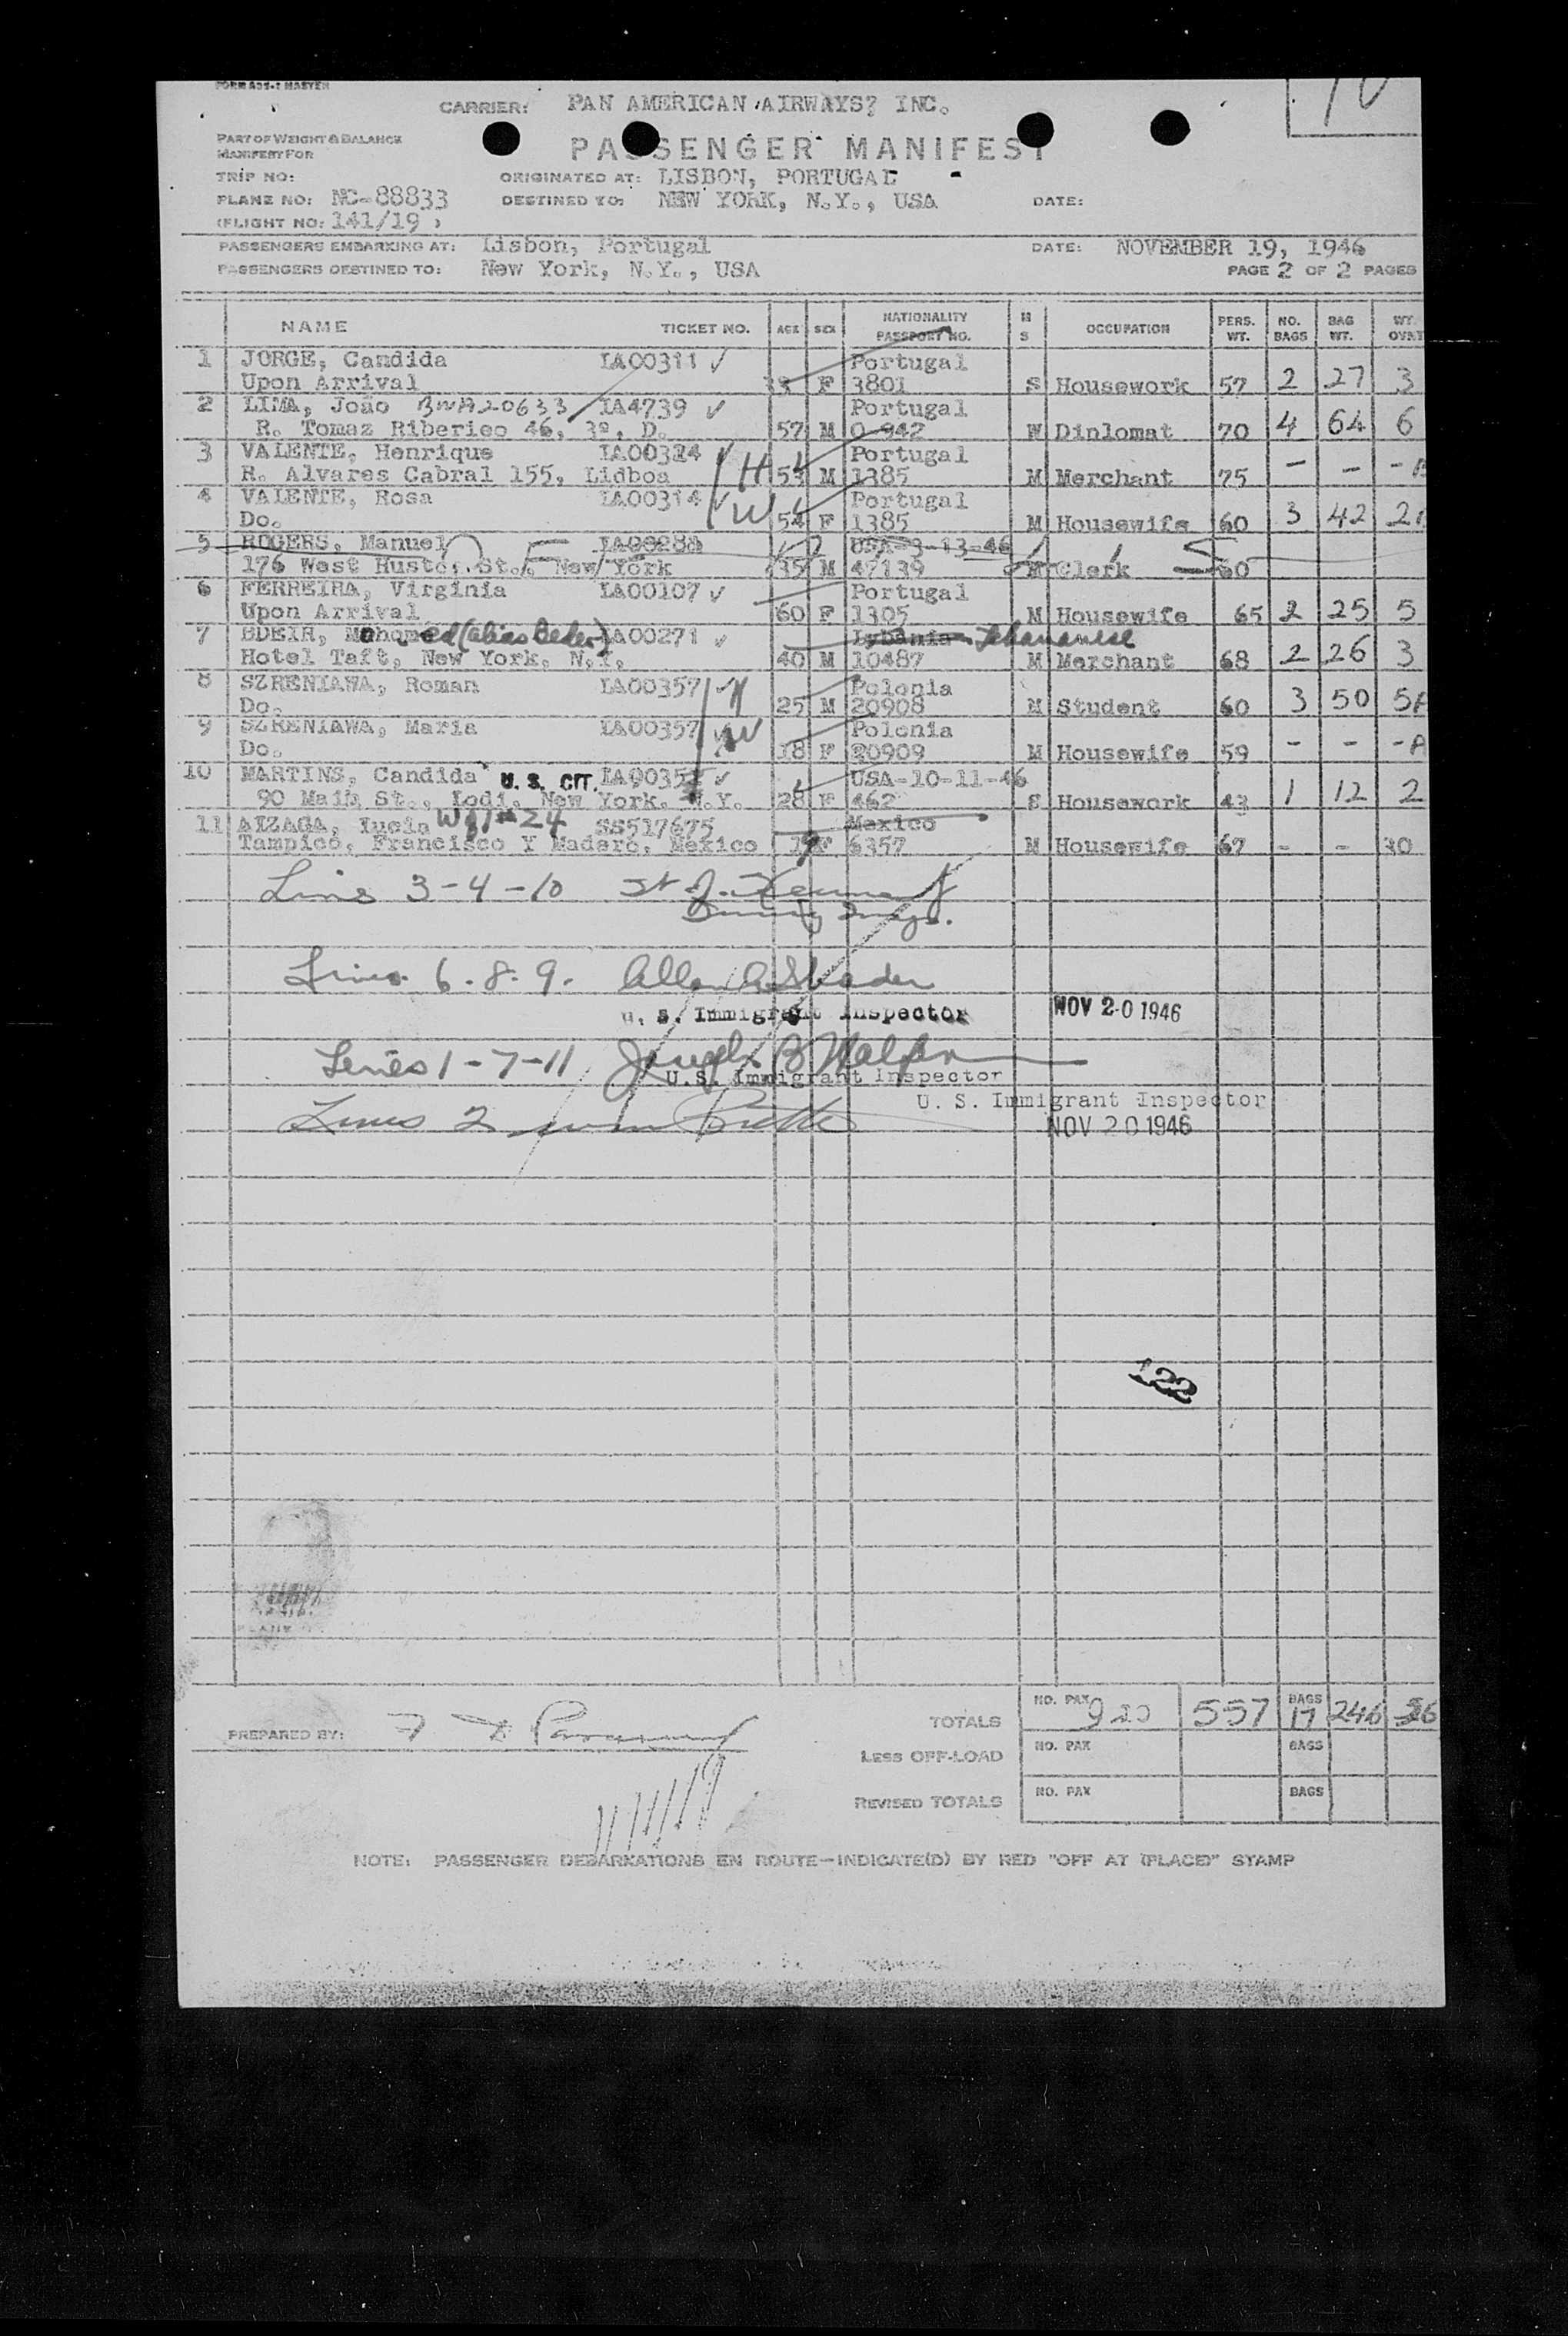 FORM A05-1 MASTER
CARRIER: PAN AMERICAN AIRWAYS? INC.
PART OF WEIGHT & BALANCE
MANIFEST FOR
PASSENGER MANIFEST
TRIP NO: ORIGINATED AT: LISBON, PORTUGAL
PLANE NO: NC-88833 DESTINED TO: NEW YORK, N.Y., USA DATE:
(FLIGHT NO: 141/19 )
PASSENGERS EMBARKING AT: Lisbon, Portugal DATE: NOVEMBER 19, 1946
PASSENGERS DESTINED TO: New York, N.Y., USA PAGE 2 OF 2 PAGES
NAME TICKET NO. AGE SEX NATIONALITY PASSPORT NO. M S OCCUPATION PERS. WT. NO. BAGS BAG WT. WT.
1 JORGE, Candida IA00311 ✓ Portugal
Upon Arrival F 3801 S Housework 57 2 27 3
2 LIMA, João BWA20633 IA4739 ✓ Portugal
R. Tomaz Riberieo 46, 3º, D. 57 M 0 942 W Dinlomat 70 4 64 6
3 VALENTE, Henrique IA00324 H Portugal
R. Alvares Cabral 155, Lidboa 53 M 1385 M Merchant 75 - - -
4 VALENTE, Rosa IA00314 W Portugal
Do. 54 F 1385 M Housewife 60 3 42 21
5 ROGERS, Manuel IA00288 USA-3-13-46
176 West Huston St., New York 35 M 47139 M Clerk 60
6 FERREIRA, Virginia IA00107 ✓ Portugal
Upon Arrival 60 F 1305 M Housewife 65 2 25 5
7 BDEIR, Mohomed (alias Beder) IA00271 ✓ Lybania Lebananese
Hotel Taft, New York, N.Y. 40 M 10487 M Merchant 68 2 26 3
8 SZRENIAWA, Roman IA00357 H Polonia
Do. 25 M 20908 M Student 60 3 50 5A
9 SZRENIAWA, Maria IA00357 W Polonia
Do. 18 F 20909 M Housewife 59 - - -A
10 MARTINS, Candida U. S. CIT. ✓ USA-10-11-46
90 Main St., Lodi, New York, N.Y. 28 F 462 S Housework 43 1 12 2
11 AIZAGA, Lucia SS517675 Mexico
Tampico, Francisco Y Madero, Mexico 19 F 6357 M Housewife 67 - - 30
Lins 3-4-10
Lines 6.8.9.
U. S. Immigrant Inspector NOV 20 1946
Lines 1-7-11 Joseph B Halpern
U.S. Immigrant Inspector
U. S. Immigrant Inspector
Lines 2
NOV 20 1946
122
PREPARED BY:
TOTALS NO. PAX 557 BAGS 17 246 56
LESS OFF-LOAD NO. PAX BAGS
REVISED TOTALS NO. PAX BAGS
NOTE: PASSENGER DEBARKATIONS EN ROUTE—INDICATE(D) BY RED "OFF AT (PLACE)" STAMP